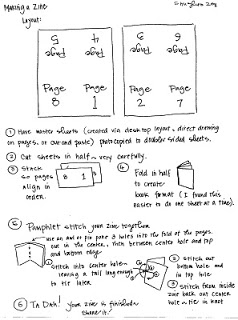 Making a Zine
Layout:
5
4
Page
Page
Page
Page
8
1
6
3
Page
Page
Page
Page
2
7
① Have master sheets (created via desktop layout, direct drawing
on pages, or cut and paste) photocopied to double sided sheets.
② Cut sheets in half ~ very carefully.
③ Stack
so pages
align in
order.
8 1
④ Fold in half
to create
book format (I found this
easier to do one sheet at a time).
⑤ Pamphlet stitch your zine together
use an awl or pin poke 3 holes into the fold of the pages.
one in the center, then between center hole and top
and bottom edge.
① Stitch into center hole ~
leaving a tail long enough
to tie later
② Stitch out
bottom hole and
in top hole
③ Stitch from inside
zine back out center
hole ~ tie in knot
⑥ Ta Dah! Your zine is finished ~
share it!